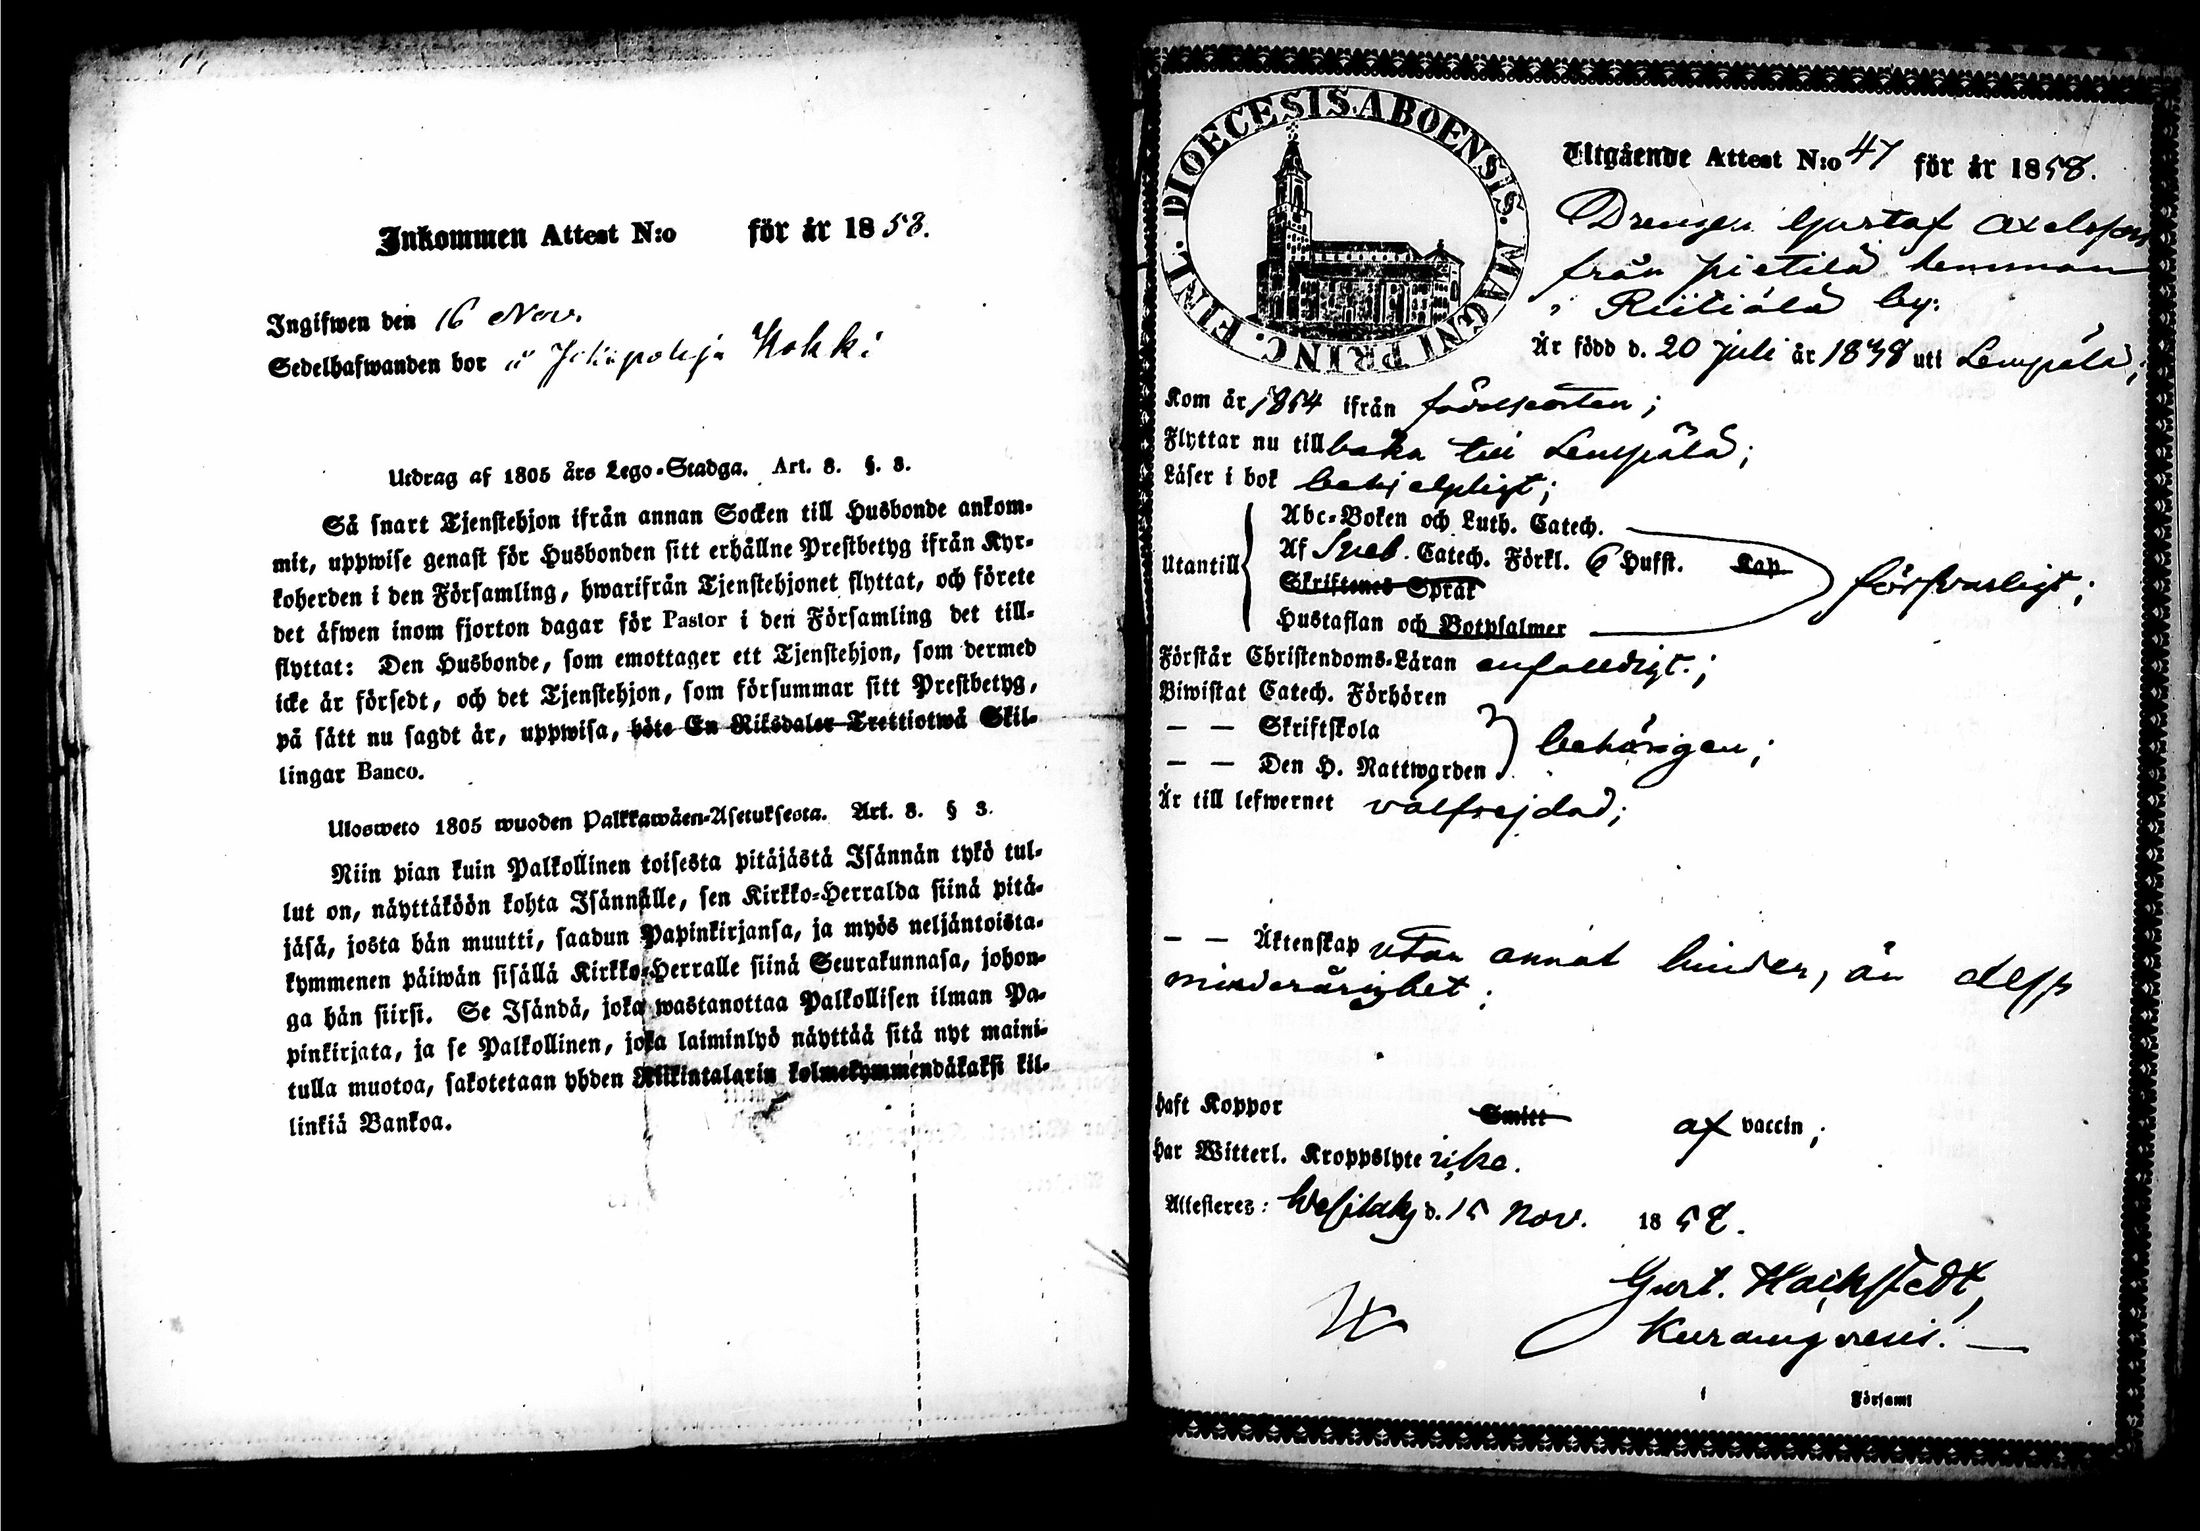 Inkommen Attest N:o för år 1858.
Ingifwen den 16 Nov.
Sedelhafwanden bor i Hokki
Utdrag af 1805 års Lego-Stadga. Art. 8. §. 3.
Så snart Tjenstehjon ifrån annan Socken till Husbonde ankom-
mit, uppwise genast för Husbonden sitt erhållne Prestbetyg ifrån Kyr-
koherden i den Församling, hwarifrån Tjenstehjonet flyttat, och förete
det äfwen inom fjorton dagar för Pastor i den Församling det till-
flyttat: Den Husbonde, som emottager ett Tjenstehjon, som dermed
icke är försedt, och det Tjenstehjon, som försummar sitt Prestbetyg,
på sätt nu sagdt är, uppwisa, böte En Riksdaler Trettiotwå Skil-
lingar Banco.
Ulosweto 1805 wuoden Palkkawäen-Asetuksesta. Art. 8. § 3.
Niin pian kuin Palkollinen toisesta pitäjästä Isännän tykö tul-
lut on, näyttäköön kohta Isännälle, sen Kirkko-Herralda siinä pitä-
jäsä, josta hän muutti, saadun Papinkirjansa, ja myös neljäntoista-
kymmenen päiwän sisällä Kirkko-Herralle siinä Seurakunnasa, johon-
ga hän siirsi. Se Isändä, joka wastanottaa Palkollisen ilman Pa-
pinkirjata, ja se Palkollinen, joka laiminlyö näyttää sitä nyt maini-
tulla muotoa, sakotetaan yhden Riikintalarin kolmekymmendäkaksi kil-
linkiä Bankoa.
DIOECESIS ABOENSIS. MAGNI PRINC. FINL.
Utgående Attest N:o 47 för år 1858.
Drengen Gustaf Axelsson
från Pietilä hemman
i Riitiälä by.
Är född d. 20 Juli år 1838 uti Lempälä;
Kom år 1854 ifrån födelseorten;
Flyttar nu tillbaka till Lempälä;
Läser i bok behjelpligt;
Utantill
Abc-Boken och Luth. Catech.
Af Sveb. Catech. Förkl. 6 Hufst. Kap
Skriftenes Språk
Hustaflan och Botpsalmer
försvarligt;
Förstår Christendoms-Läran enfalldigt.;
Biwistat Catech. Förhören
— — Skriftskola
— — Den H. Nattwarden
behörigen;
Är till lefwernet välfrejdad;
— — Äktenskap utan annat hinder, än dess
minderårighet;
Haft Koppor Smitt af vaccin;
Har Witterl. Kroppslyte icke.
Attesteres: Wesilaks d. 15 Nov. 1858.
Gust. Hackstedt,
i Församl